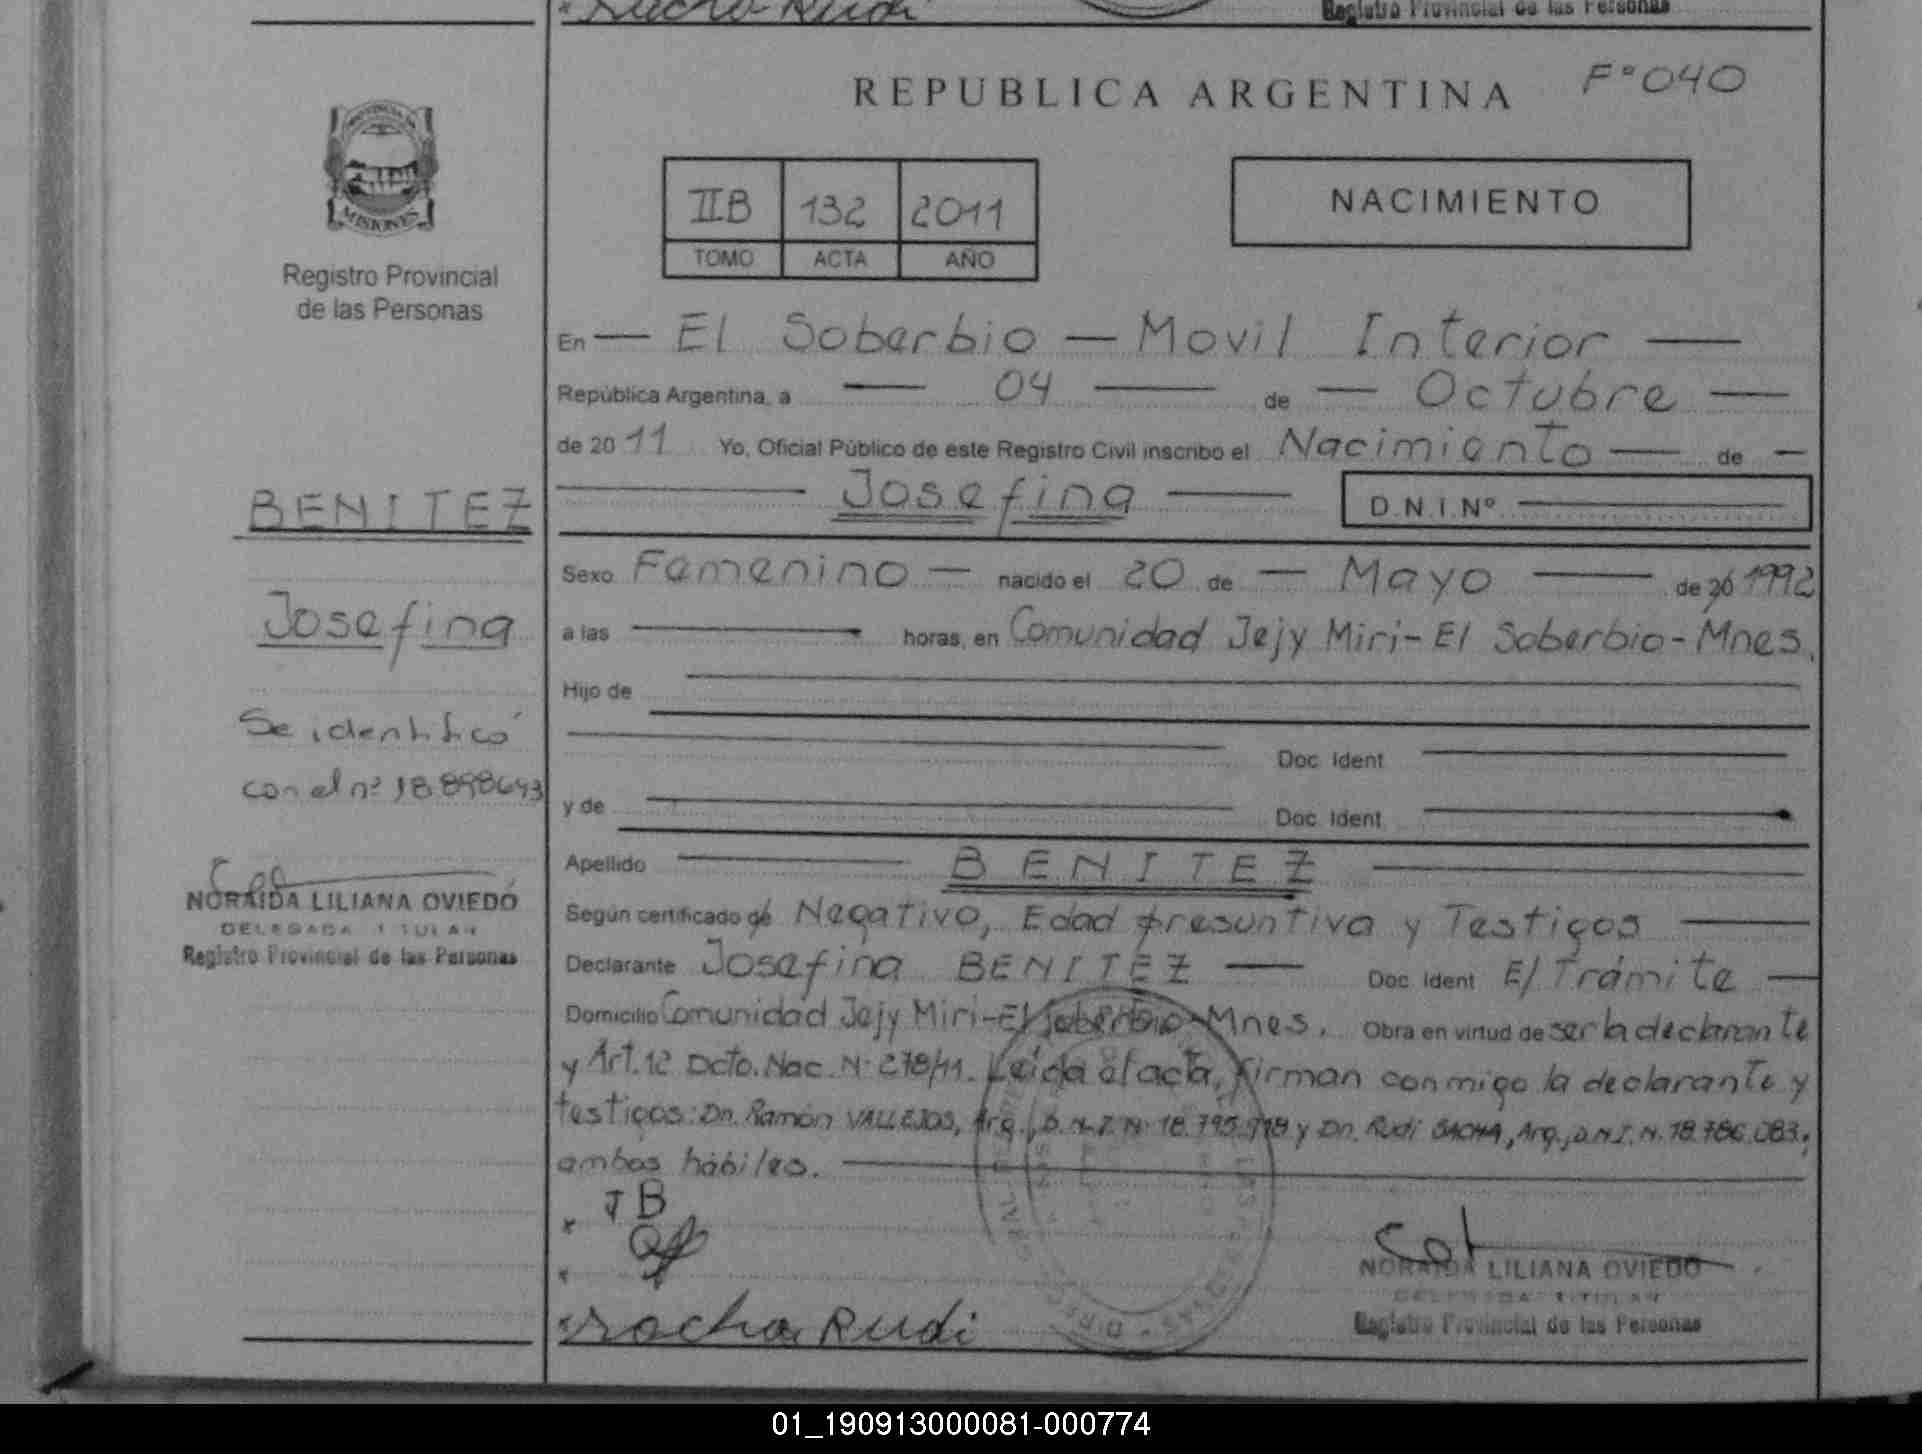 Rudi
Registro Provincial de las Personas
REPUBLICA ARGENTINA F° 040
MISIONES
Registro Provincial
de las Personas
IIB 132 2011
TOMO ACTA AÑO
NACIMIENTO
En — El Soberbio — Movil Interior —
República Argentina, a — 04 — de — Octubre —
de 20 11 Yo, Oficial Público de este Registro Civil inscribo el Nacimiento — de —
— Josefina — D.N.I.Nº —
BENITEZ
Josefina
Se identificó
con el nº 18.898643
NORAIDA LILIANA OVIEDO
DELEGADA TITULAR
Registro Provincial de las Personas
Sexo Femenino — nacido el 20 de — Mayo — de 20 1992
a las — horas, en Comunidad Jejy Miri - El Soberbio - Mnes.
Hijo de —
— Doc. Ident —
y de — Doc. Ident —
Apellido — BENITEZ —
Según certificado de Negativo, Edad presuntiva y Testigos —
Declarante Josefina BENITEZ — Doc. Ident E/Trámite —
Domicilio Comunidad Jejy Miri - El Soberbio - Mnes. Obra en virtud de ser la declarante
y Art. 12 Dcto. Nac. Nº 278/11. Leída el acta, firman conmigo la declarante y
testigos: Dn. Ramón VALLEJOS, Arg., D.N.I. Nº 18.795.718 y Dn. Rudi SACHA, Arg., D.N.I. N. 18.786.083,
ambos hábiles. —
JB
Rudi
NORAIDA LILIANA OVIEDO
DELEGADA TITULAR
Registro Provincial de las Personas
01_190913000081-000774